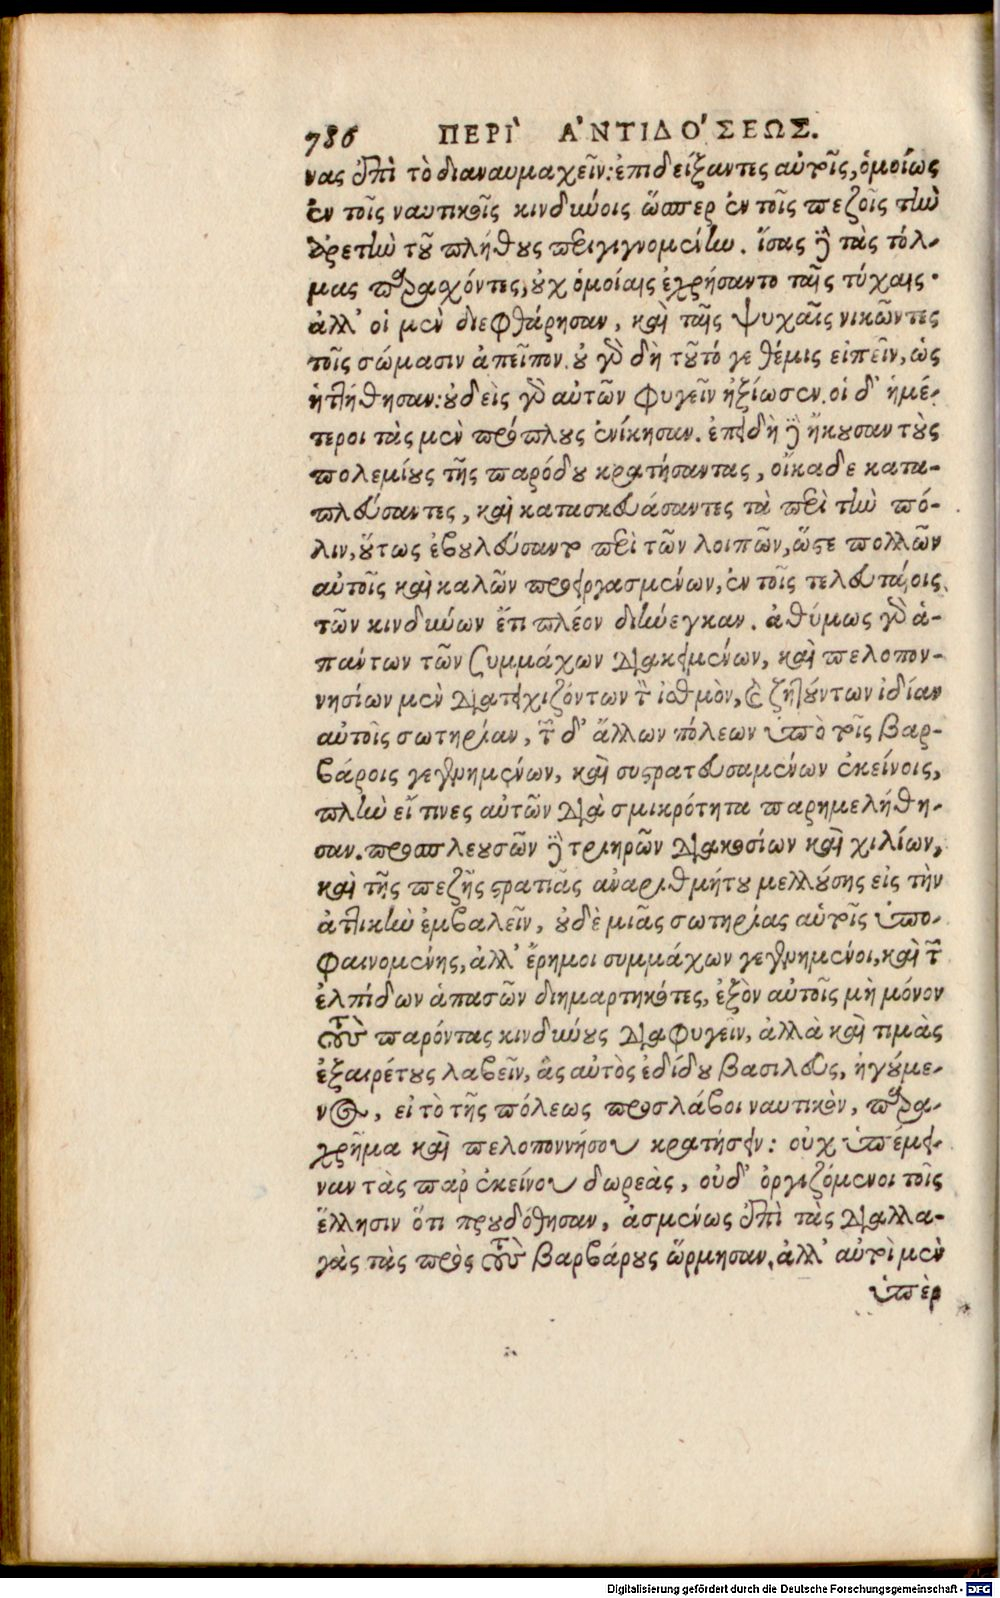 786 ΠΕΡΙ` Α'ΝΤΙΔΟ'ΣΕΩΣ.
νας ἐπὶ τὸ διαναυμαχεῖν: ἐπιδείξαντες αὐτοῖς, ὁμοίως
ἐν τοῖς ναυτικοῖς κινδύνοις ὥσπερ ἐν τοῖς πεζοῖς τὴν
ἀρετὴν τοῦ πλήθους περιγιγνομένην. ἴσας δὲ τὰς τόλ-
μας παραχόντες, οὐχ ὁμοίαις ἐχρήσαντο ταῖς τύχαις.
ἀλλ' οἱ μὲν διεφθάρησαν, καὶ ταῖς ψυχαῖς νικῶντες
τοῖς σώμασιν ἀπεῖπον. οὐ γὰρ δὴ τοῦτό γε θέμις εἰπεῖν, ὡς
ἡττήθησαν: οὐδεὶς γὰρ αὐτῶν φυγεῖν ἠξίωσεν. οἱ δ' ἡμέ-
τεροι τὰς μὲν πρόπλους ἐνίκησαν. ἐπειδὴ δὲ ἤκουσαν τοὺς
πολεμίους τῆς παρόδου κρατήσαντας, οἴκαδε κατα-
πλεύσαντες, καὶ κατασκευάσαντες τὰ περὶ τὴν πό-
λιν, οὕτως ἐβουλεύσαντο περὶ τῶν λοιπῶν, ὥστε πολλῶν
αὐτοῖς καὶ καλῶν προειργασμένων, ἐν τοῖς τελευταίοις
τῶν κινδύνων ἔτι πλέον διήνεγκαν. ἀθύμως γὰρ ἁ-
πάντων τῶν συμμάχων διακειμένων, καὶ πελοπον-
νησίων μὲν διατειχιζόντων τὸν ἰσθμὸν, καὶ ζητούντων ἰδίαν
αὐτοῖς σωτηρίαν, τῶν δ' ἄλλων πόλεων ὑπὸ τοῖς βαρ-
βάροις γεγενημένων, καὶ συστρατευσαμένων ἐκείνοις,
πλὴν εἴ τινες αὐτῶν διὰ σμικρότητα παρημελήθη-
σαν. προσπλευσῶν δὲ τριηρῶν διακοσίων καὶ χιλίων,
καὶ τῆς πεζῆς στρατιᾶς ἀναριθμήτου μελλούσης εἰς τὴν
ἀττικὴν ἐμβαλεῖν, οὐδὲ μιᾶς σωτηρίας αὐτοῖς ὑπο-
φαινομένης, ἀλλ' ἔρημοι συμμάχων γεγενημένοι, καὶ τῶν
ἐλπίδων ἁπασῶν διημαρτηκότες, ἐξὸν αὐτοῖς μὴ μόνον
τοὺς παρόντας κινδύνους διαφυγεῖν, ἀλλὰ καὶ τιμὰς
ἐξαιρέτους λαβεῖν, ἃς αὐτὸς ἐδίδου βασιλεὺς, ἡγούμε-
νος, εἰ τὸ τῆς πόλεως προσλάβοι ναυτικὸν, παρα-
χρῆμα καὶ πελοποννήσου κρατήσειν: οὐχ ὑπέμει-
ναν τὰς παρ' ἐκείνου δωρεὰς, οὐδ' ὀργιζόμενοι τοῖς
ἕλλησιν ὅτι προυδόθησαν, ἀσμένως ἐπὶ τὰς διαλλα-
γὰς τὰς πρὸς τοὺς βαρβάρους ὥρμησαν. ἀλλ' αὐτοὶ μὲν
ὑπὲρ
Digitalisierung gefördert durch die Deutsche Forschungsgemeinschaft - DFG